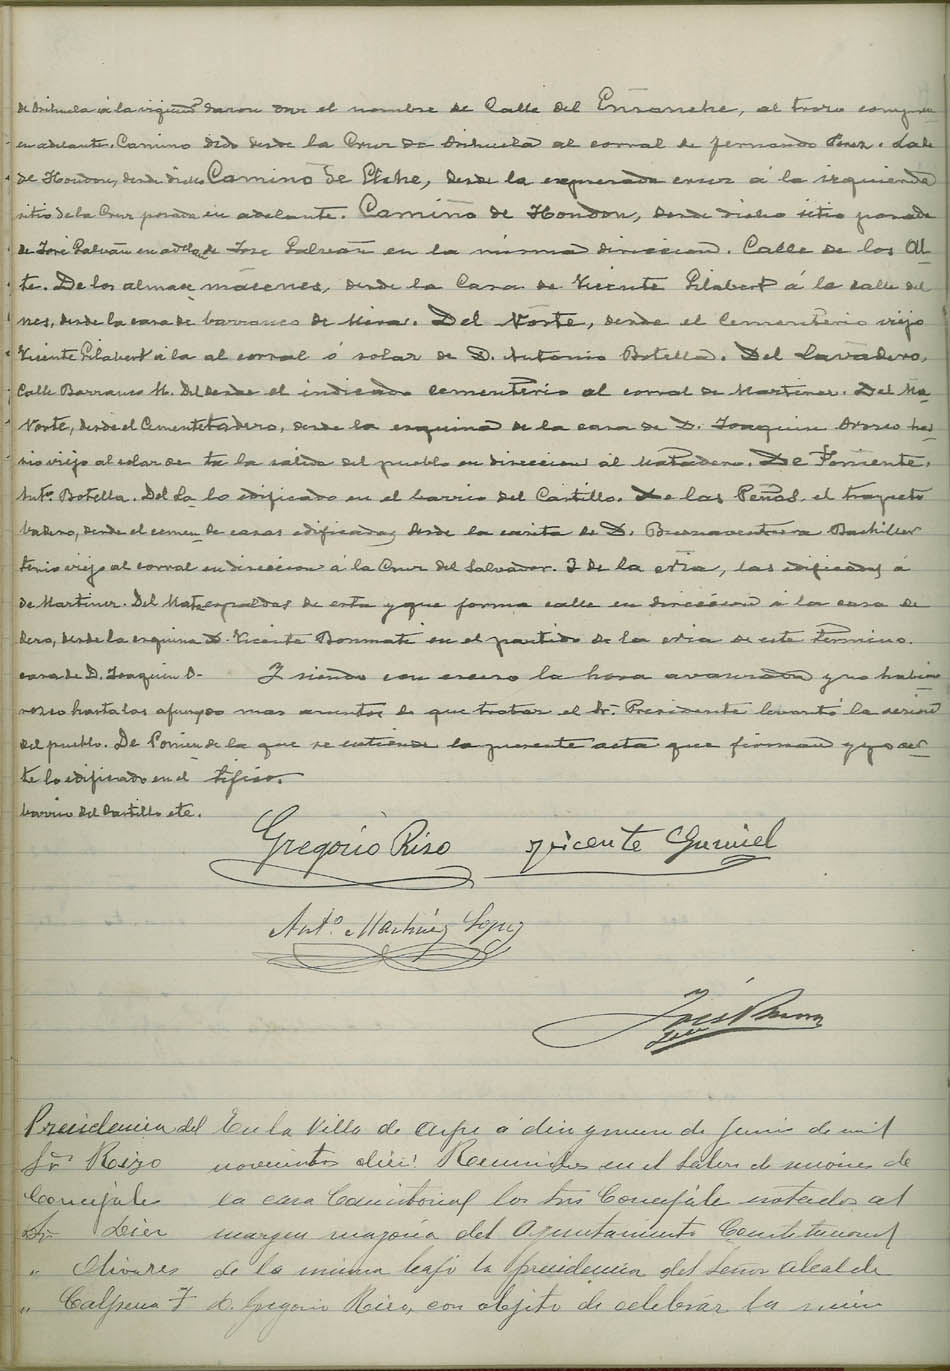 de Orihuela á la izquierd
en adelante. Camino
de Hondon, desde dicho
sitio de la Cruz posada
de José Galvañ en adelan
te. De los almace
nes, desde la casa de
Vicente Gilabert á la
Calle Barranco M. Del
Norte, desde el Cemente
rio viejo al solar de
Antº Botella. Del La
badero, desde el cemen
terio viejo al corral
de Martinez. Del Mata
dero, desde la esquina
casa de D. Joaquin O-
rozco hasta las afueras
del pueblo. De Ponien
te lo edificado en el
barrio del Castillo etc.
daron dar el nombre de Calle del Ensanche, al trozo compren
dido desde la Cruz de Orihuela al corral de Fernando Perez.
Camino de Elche, desde la expresada cruz á la izquierda
en adelante. Camino de Hondon, desde dicho sitio posada
de José Galvañ en la misma direccion. Calle de los Al-
macenes, desde la Casa de Vicente Gilabert á la calle del
barranco de Mira. Del Norte, desde el Cementerio viejo
al corral ó solar de D. Antonio Botella. Del Lavadero,
desde el indicado cementerio al corral de Martinez. Del Ma-
tadero, desde la esquina de la casa de D. Joaquin Orozco has
ta la salida del pueblo en direccion al Matadero. De Poniente,
lo edificado en el barrio del Castillo. De las Peñas, el trayecto
de casas edificadas desde la casita de D. Buenaventura Bachiller
en direccion á la Cruz del Salvador. I de la Cria, las edificadas á
espaldas de esta y que forma calle en direccion á la casa de
D. Vicente Bonmatí en el partido de la Cria de este término.
I siendo con exceso la hora avanzada y no habien
do mas asuntos de que tratar el Sr. Presidente levantó la sesion
de la que se extiende la presente acta que firman y yo cer-
tifico.
Gregorio Rizo Vicente
Antº Martinez Lopez
José
Presidencia del
Sr. Rizo
Concejales
Sr. Dier
" Olivares
" Calpena F
En la Villa de Aspe á diez y nueve de Junio de mil
novecientos diez: Reunidos en el Salon de sesiones de
la casa Consistorial los tres Concejales notados al
margen mayoria del Ayuntamiento Constitucional
de la misma bajo la presidencia del Señor Alcalde
D. Gregorio Rizo, con objeto de celebrar la sesion